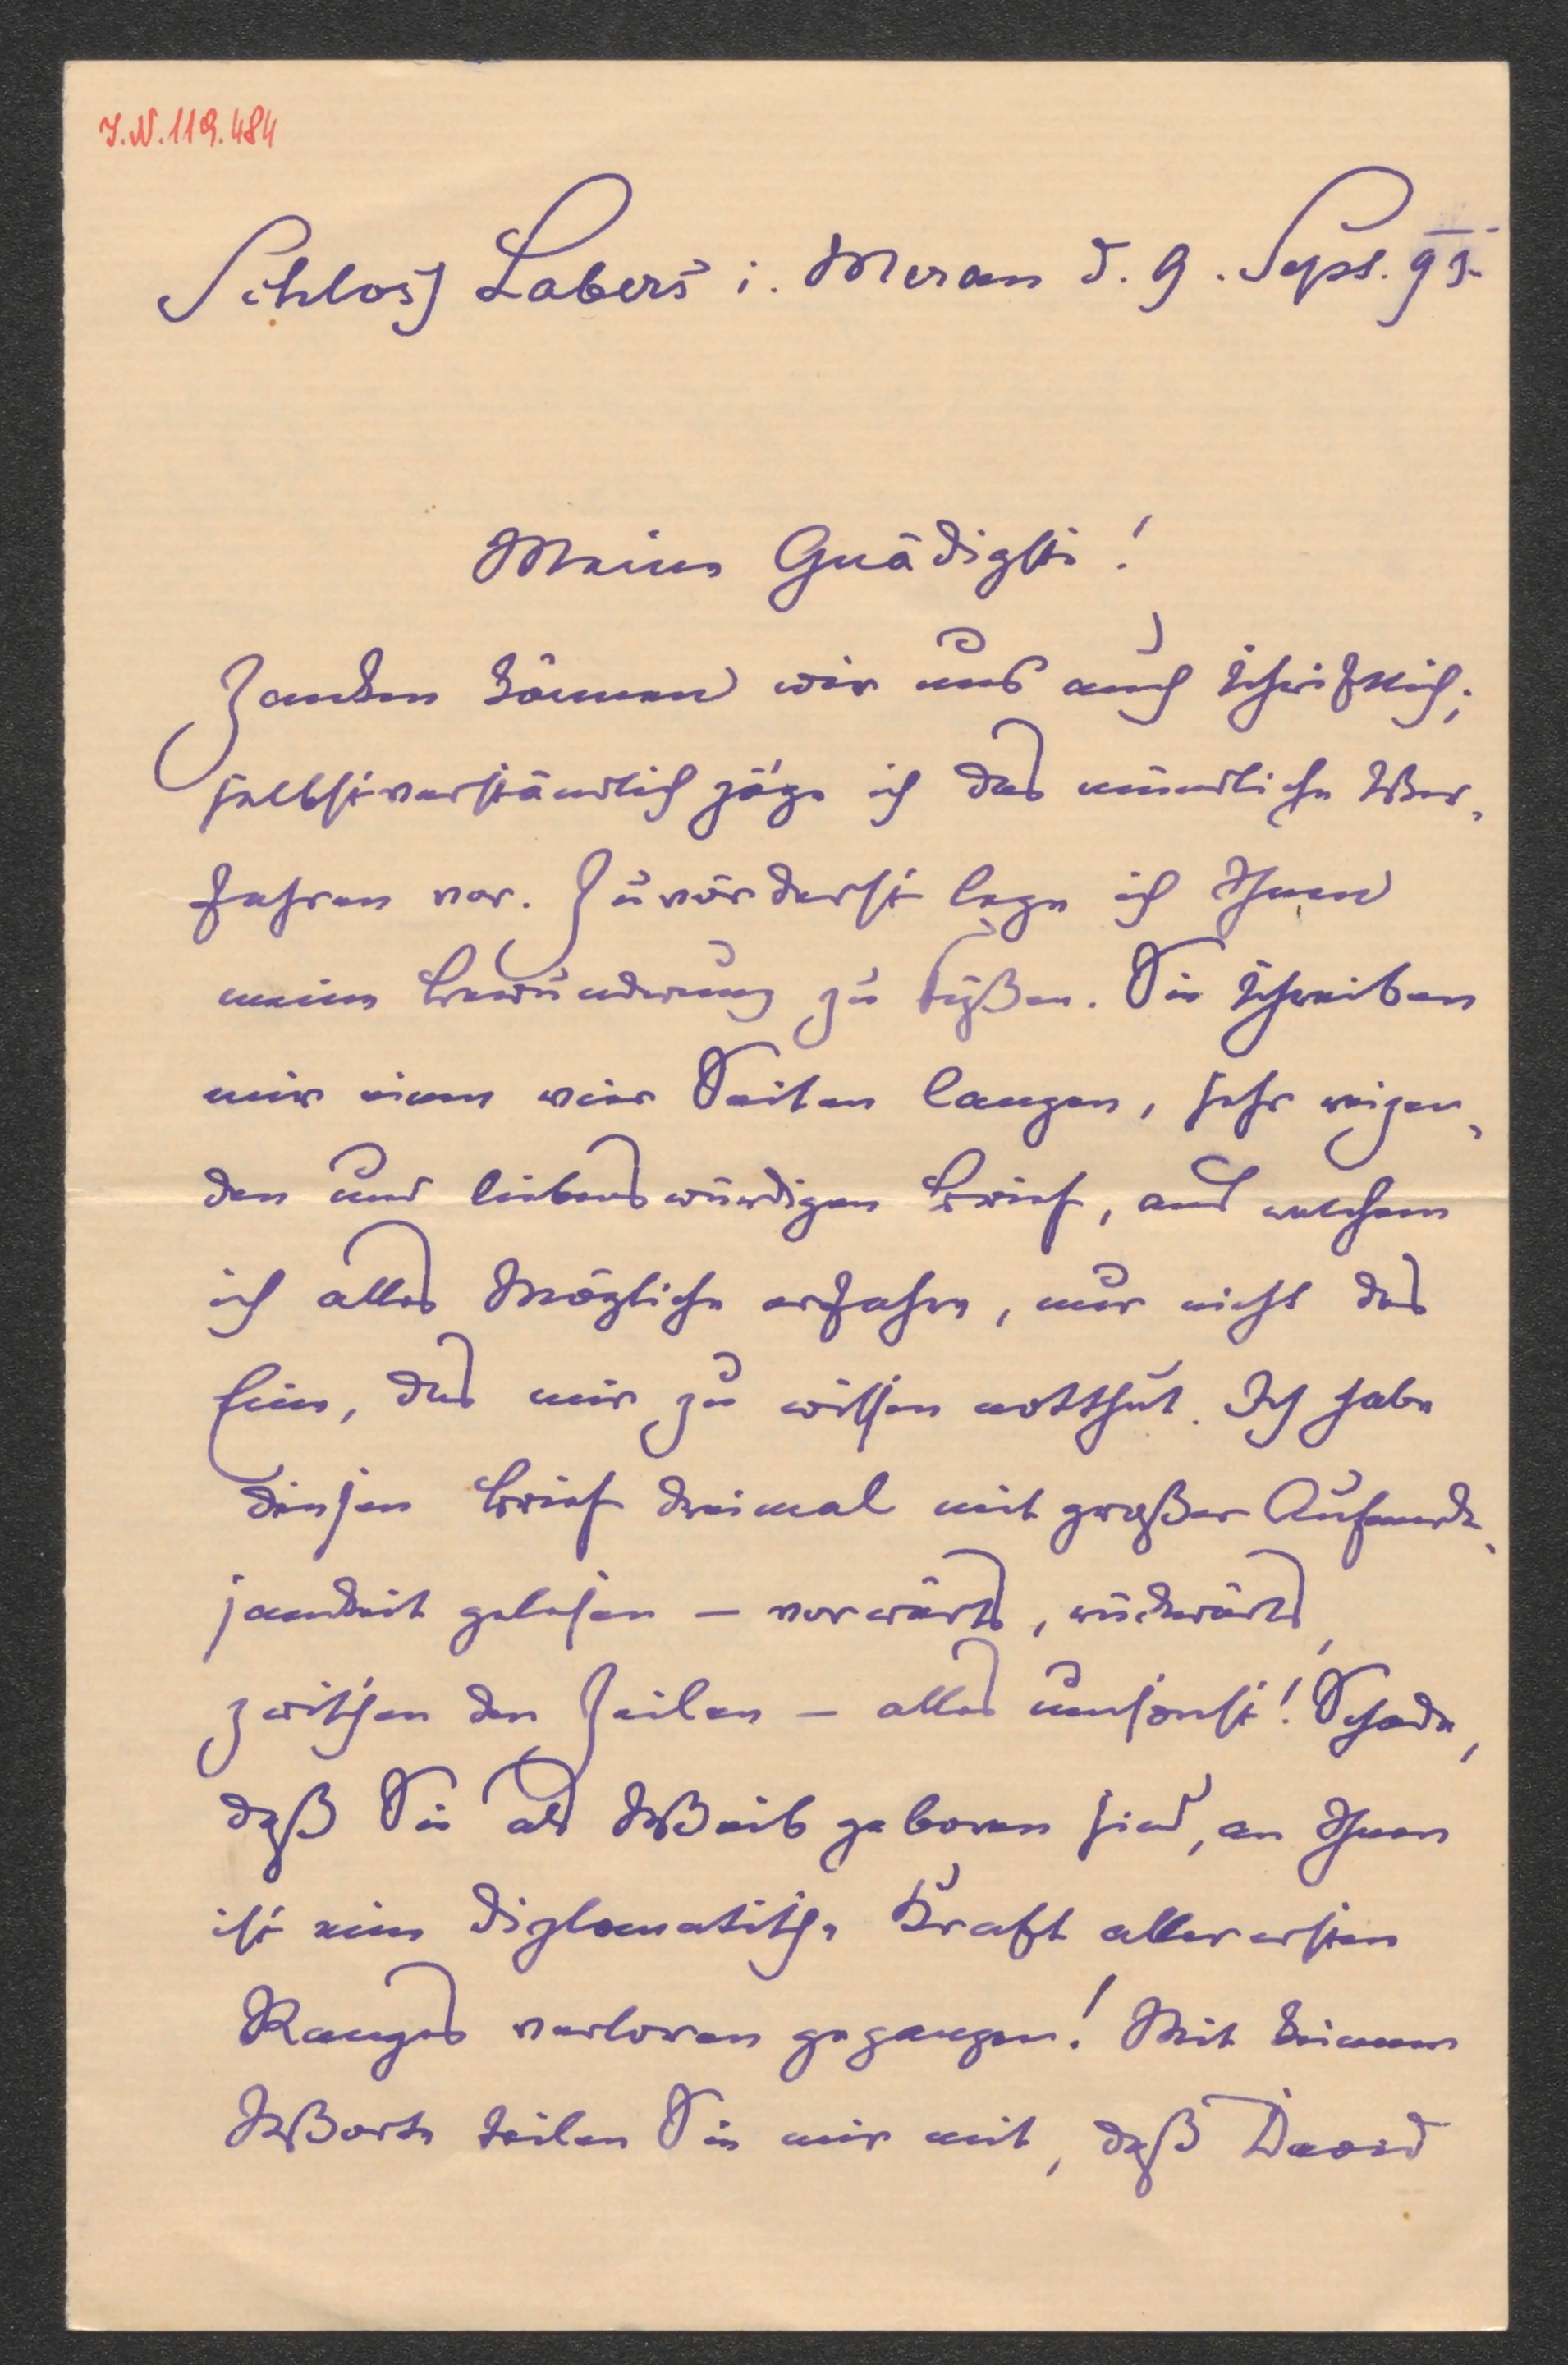 I.N. 119.484
Schloss Labers i. Meran d. 9. Sept. 93.
Meine Gnädigste!
Zanken können wir uns auch schriftlich;
selbstverständlich zöge ich das mündliche Ver-
fahren vor. Zuvörderst lege ich Ihnen
meine Bewunderung zu Füßen. Sie schreiben
mir einen vier Seiten langen, sehr reizen-
den und liebenswürdigen Brief, aus welchem
ich alles Mögliche erfahre, nur nicht das
Eine, das mir zu wissen notthut. Ich habe
diesen Brief dreimal mit großer Aufmerk-
samkeit gelesen – vorwärts, rückwärts,
zwischen den Zeilen – alles umsonst! Schade,
daß Sie als Weib geboren sind, an Ihnen
ist eine diplomatische Kraft allerersten
Ranges verloren gegangen! Mit keinem
Worte teilen Sie mir mit, daß David